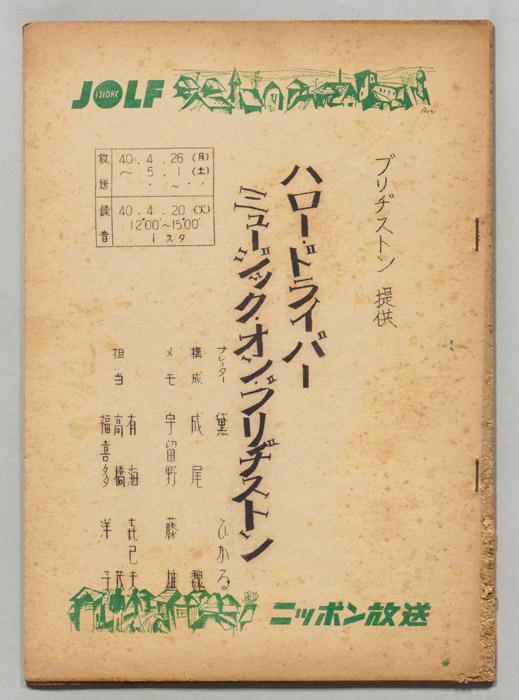 JOLF
1310KC
放送 40.4.26(月)
～5.1(土)
・・～・・
録音 40.4.20(火)
12°00'～15°00'
1スタ
ブリヂストン 提供
ハロー・ドライバー
ミュージック・オン・ブリヂストン
ナレーター 黛 ひかる
構成 成尾 巍
メモ 宇留野 藤雄
担当 有海 㐂己夫
高橋 茂
福喜多 洋子
ニッポン放送